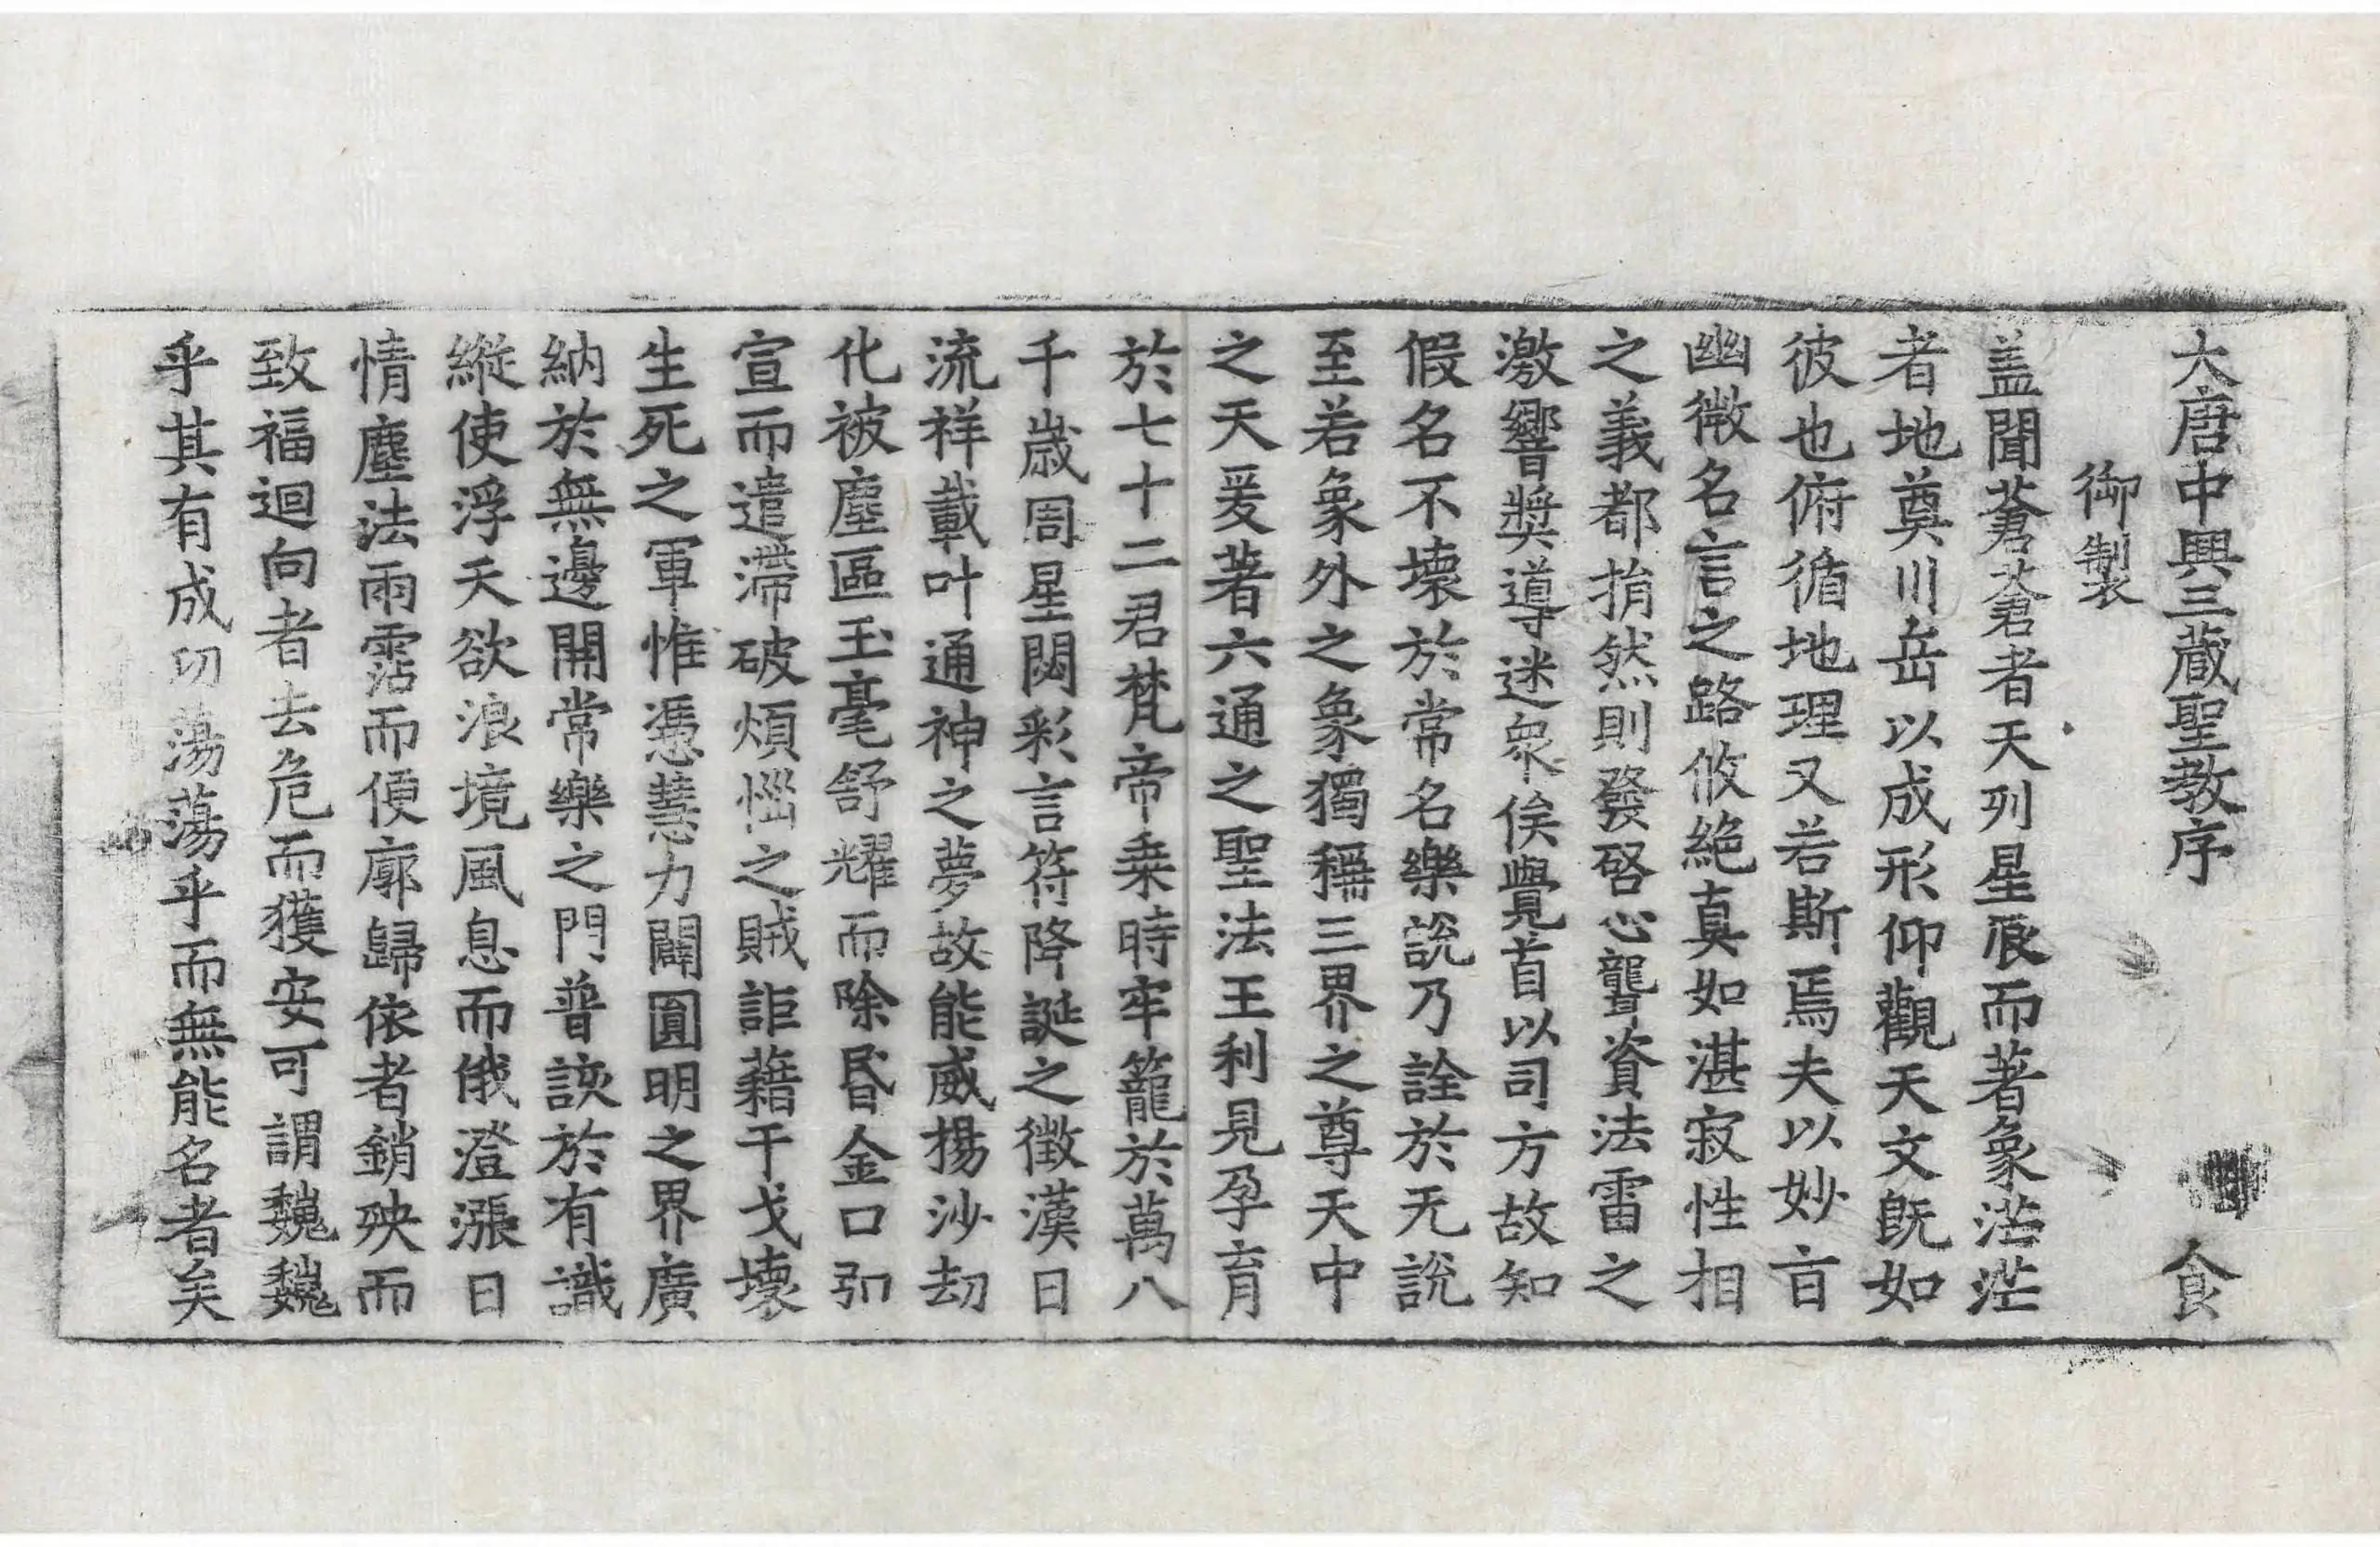 大唐中興三藏聖教序 食
御製
盖聞蒼蒼者天列星辰而著象茫茫
者地奠川岳以成形仰觀天文既如
彼也俯循地理又若斯焉夫以妙㫖
幽微名言之路攸絶真如湛寂性相
之義都捐然則發啓心聾資法雷之
激響獎導迷衆俟覺首以司方故知
假名不壞於常名樂說乃詮於无說
至若象外之象獨稱三界之尊天中
之天爰著六通之聖法王利見孕育
於七十二君梵帝乗時牢籠於萬八
千歲周星閟彩言符降誕之徵漢日
流祥載叶通神之夢故能威揚沙劫
化被塵區玉毫舒耀而除昏金口引
宣而遣滯破煩惱之賊詎藉干戈壞
生死之軍惟憑慧力闢圓明之界廣
納於無邊開常樂之門普該於有識
縱使浮天欲浪境風息而俄澄漲日
情塵法雨霑而便廓歸依者銷殃而
致福迴向者去危而獲安可謂巍巍
乎其有成㓛蕩蕩乎而無能名者矣